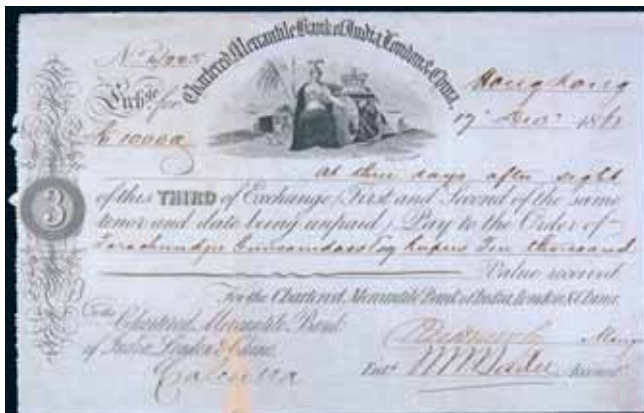 Chartered Mercantile Bank of India, London & China.
No
Exch for
Hong Kong
17 Decr 186
10000
At three days after sight
3
of this THIRD of Exchange, First and Second of the same
tenor and date being unpaid, Pay to the Order of
Rupees Ten thousand
Value received
For the Chartered Mercantile Bank of India, London & China.
To the
Chartered Mercantile Bank
of India, London & China.
Calcutta
Entd